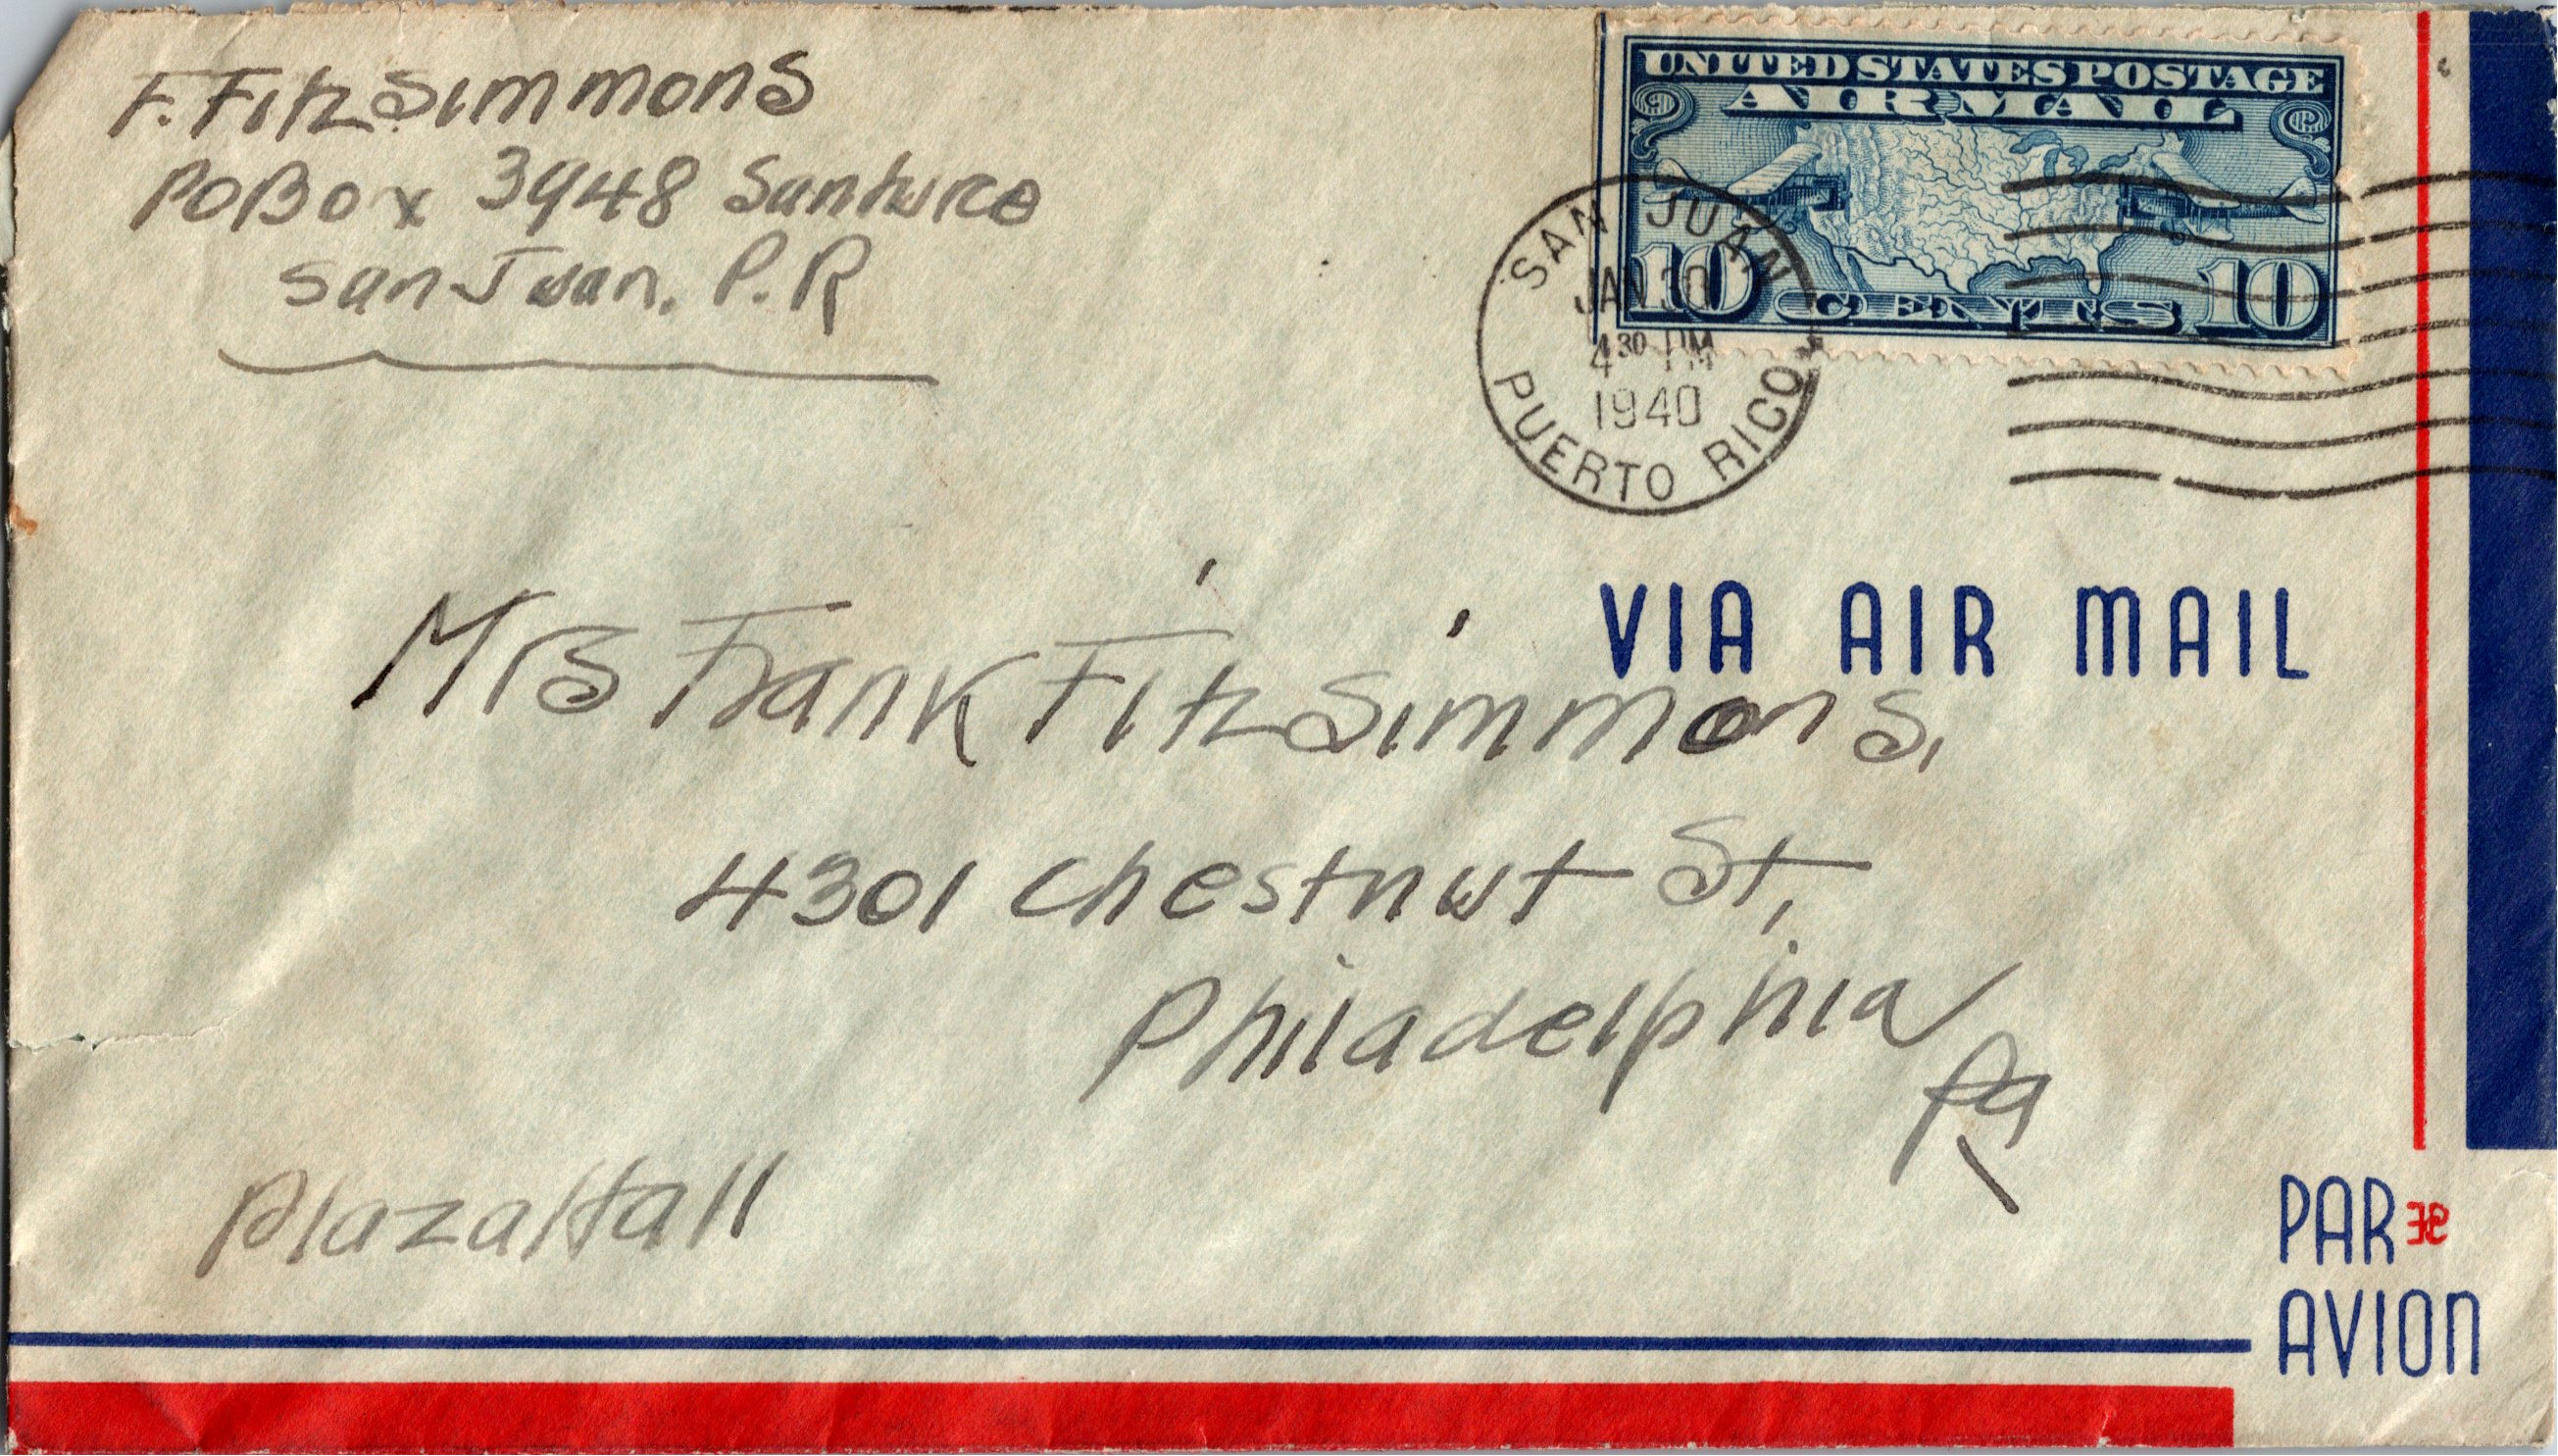 F. Fitzsimmons
PO Box 3948 Santurce
San Juan, P.R
UNITED STATES POSTAGE
AIR MAIL
10 CENTS 10
SAN JUAN
JAN 30
4 30 PM
1940
PUERTO RICO
VIA AIR MAIL
Mrs Frank Fitzsimmons,
4301 Chestnut St,
Philadelphia
Pa
Plaza Hall
PAR
AVION